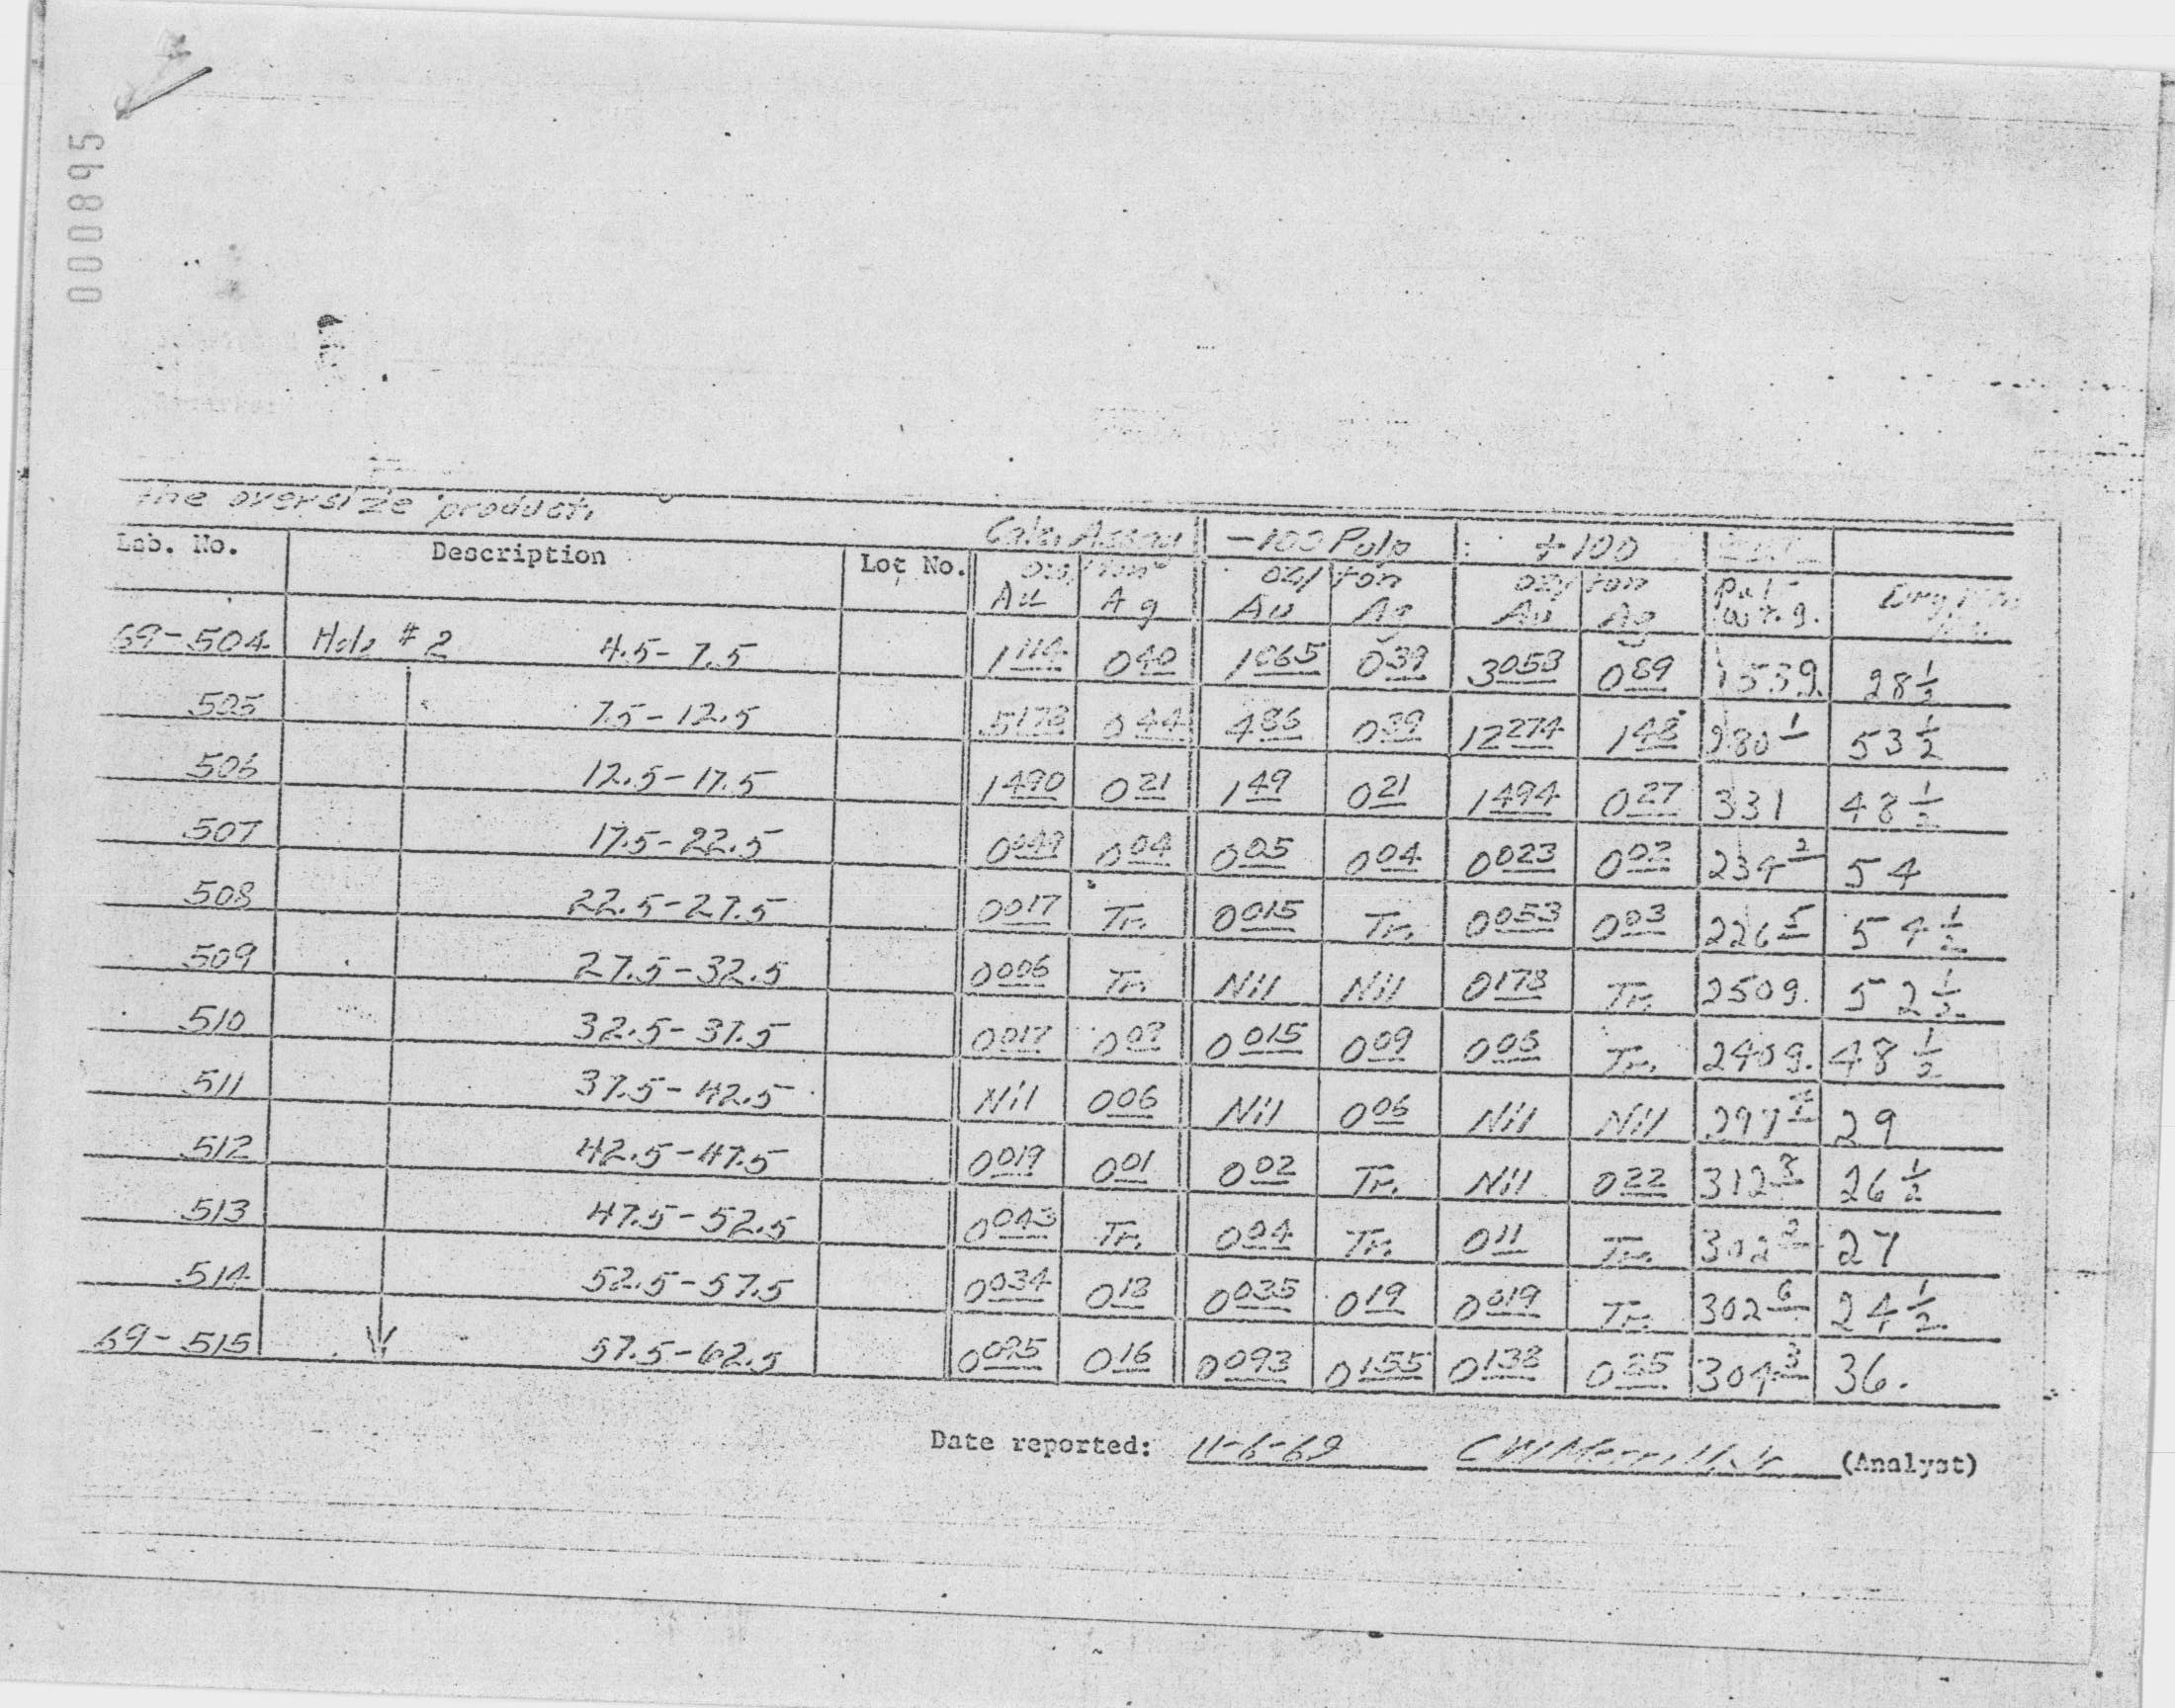 000895
the oversize product.
Calc. Assay -100 Pulp +100
Lab. No. Description Lot No. oz/ton oz/ton oz/ton
Au Ag Au Ag Au Ag Pul. wt. g.
69-504 Hole #2 4.5-7.5 1114 040 1065 039 3053 089 1539 28 1/2
505 7.5-12.5 5178 044 486 039 12274 148 280 1 53 1/2
506 12.5-17.5 1490 021 149 021 1494 027 331 48 1/2
507 17.5-22.5 0049 004 005 004 0023 002 234 2 54
508 22.5-27.5 0017 Tr. 0015 Tr. 0053 003 226 5 54 1/2
509 27.5-32.5 0006 Tr. Nil Nil 0178 Tr. 250g. 52 1/2
510 32.5-37.5 0017 009 0015 009 006 Tr. 240g. 48 1/2
511 37.5-42.5 Nil 006 Nil 006 Nil Nil 297 29
512 42.5-47.5 0019 001 002 Tr. Nil 022 312 3 26 1/2
513 47.5-52.5 0043 Tr. 004 Tr. 011 Tr. 302 2 27
514 52.5-57.5 0034 018 0035 019 0019 Tr. 302 6 24 1/2
69-515 57.5-62.5 0095 016 0093 0155 0138 035 304 3 36.
Date reported: 11-6-69 CW Merrill Jr (Analyst)